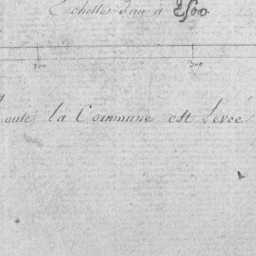 Echelles d'un à 2500
100 200
toute la Commune est levée